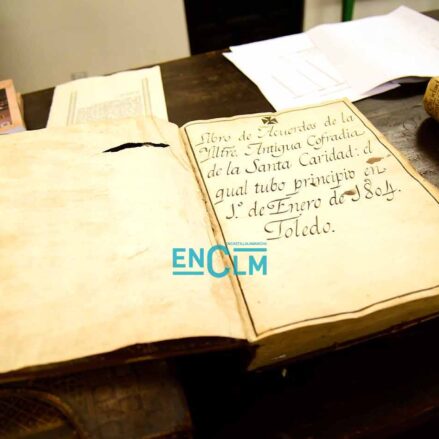 Libro de Acuerdos de la
Ylltre. Antigua Cofradia
de la Santa Caridad: el
qual tubo principio en
1.º de Enero de 1804.
Toledo.
ENCASTILLALAMANCHA
ENCLM